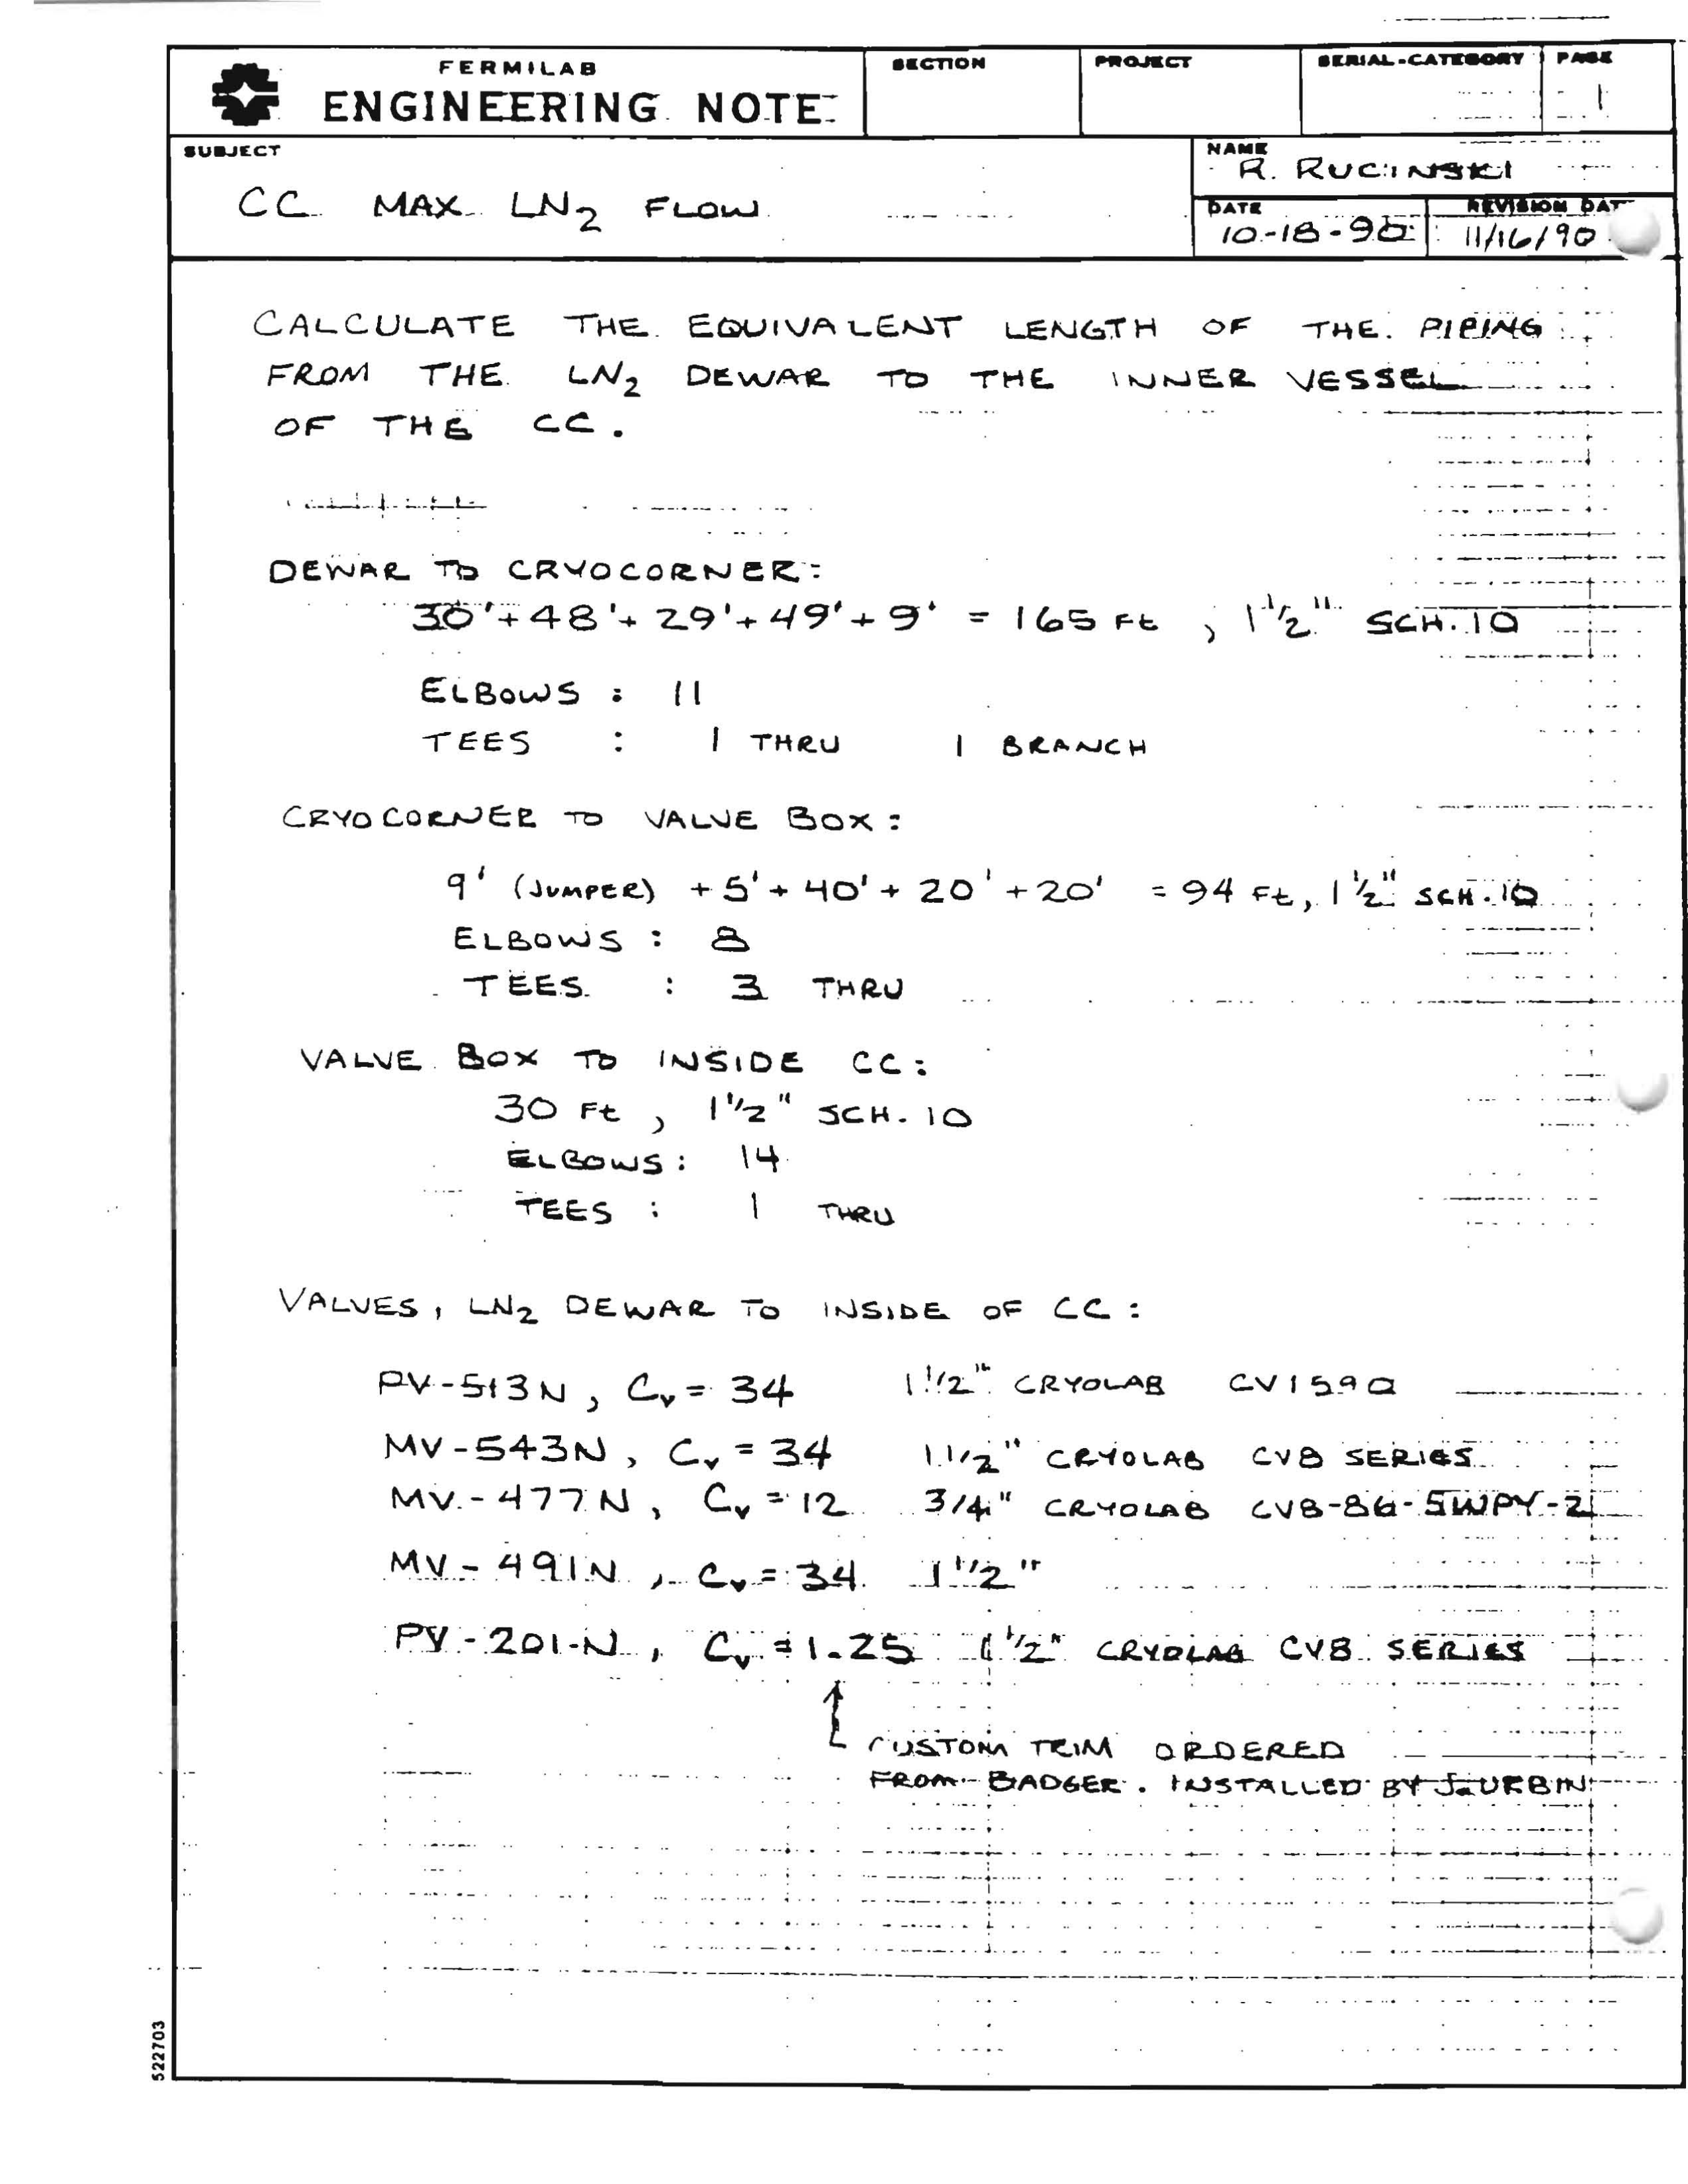 FERMILAB
ENGINEERING NOTE
SECTION
PROJECT
SERIAL-CATEGORY
PAGE
1
SUBJECT
CC MAX LN2 FLOW
NAME
R. RUCINSKI
DATE
10-18-90
REVISION DAT
11/16/90
CALCULATE THE EQUIVALENT LENGTH OF THE PIPING
FROM THE LN2 DEWAR TO THE INNER VESSEL
OF THE CC.
DEWAR TO CRYOCORNER:
30'+48'+29'+49'+9' = 165 Ft , 1 1/2" SCH. 10
ELBOWS : 11
TEES : 1 THRU 1 BRANCH
CRYOCORNER TO VALVE BOX:
9' (JUMPER) + 5' + 40' + 20' + 20' = 94 Ft, 1 1/2" SCH. 10
ELBOWS : 8
TEES : 3 THRU
VALVE BOX TO INSIDE CC:
30 Ft , 1 1/2" SCH. 10
ELBOWS: 14
TEES : 1 THRU
VALVES, LN2 DEWAR TO INSIDE OF CC:
PV-513N, Cv = 34 1 1/2" CRYOLAB CV1590
MV-543N, Cv = 34 1 1/2" CRYOLAB CV8 SERIES
MV-477N, Cv = 12 3/4" CRYOLAB CV8-86-5WPY-2
MV-491N, Cv = 34 1 1/2"
PV-201-N, Cv = 1.25 1 1/2" CRYOLAB CV8 SERIES
CUSTOM TRIM ORDERED
FROM BADGER. INSTALLED BY J. URBIN
522703